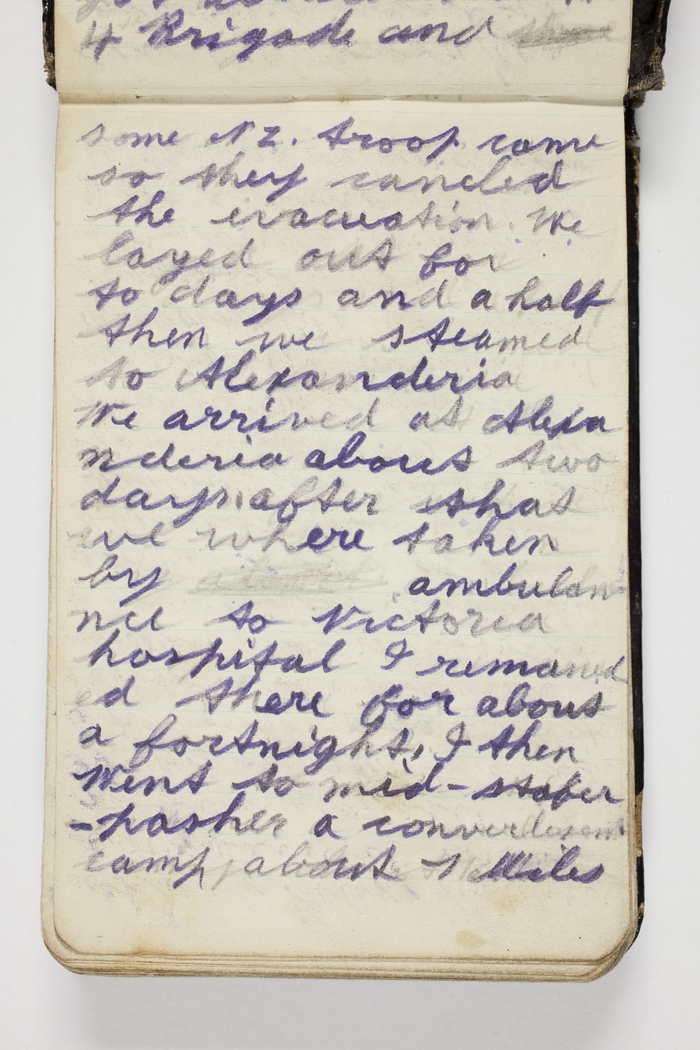 4 Brigade and
some N.Z. troop came
so they canceled
the evacuation. We
layed out for
to days and a half
then we steamed
to Alexanderia
We arrived at Alexa
nderia about two
days after that
we where taken
by ambulan-
nce to Victoria
hospital I remained
ed there for about
a fortnight, I then
went to mid-
-pasher a
camp, about Miles